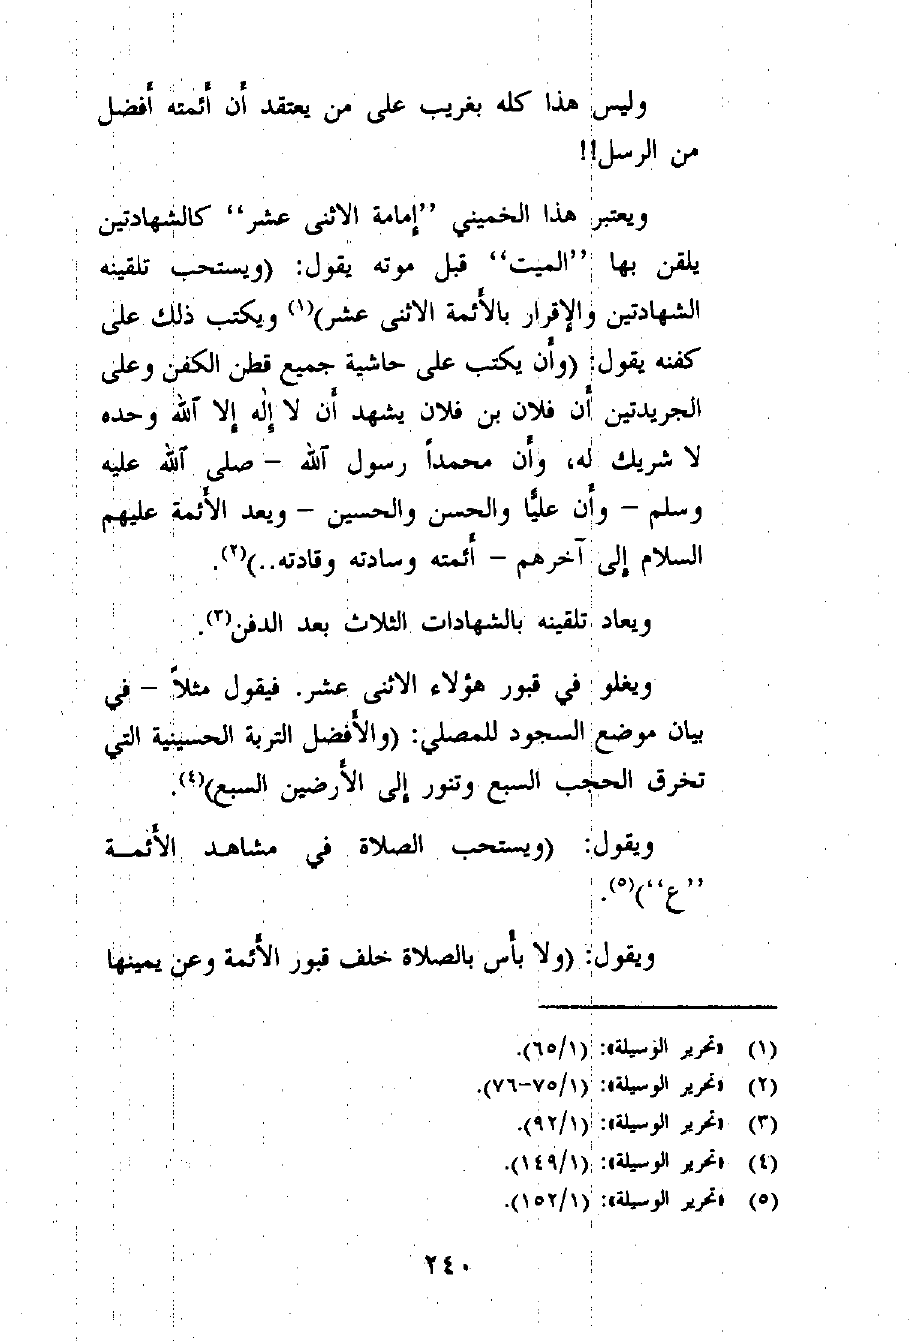 وليس هذا كله بغريب على من يعتقد أن أئمته أفضل
من الرسل!!
ويعتبر هذا الخميني ’’إمامة الاثنى عشر‘‘ كالشهادتين
يلقن بها ’’الميت‘‘ قبل موته يقول: (ويستحب تلقينه
الشهادتين والإقرار بالأئمة الاثنى عشر)(١) ويكتب ذلك على
كفنه يقول: (وأن يكتب على حاشية جميع قطن الكفن وعلى
الجريدتين أن فلان بن فلان يشهد أن لا إله إلا الله وحده
لا شريك له، وأن محمداً رسول الله – صلى الله عليه
وسلم – وأن عليًّا والحسن والحسين – ويعد الأئمة عليهم
السلام إلى آخرهم – أئمته وسادته وقادته..)(٢).
ويعاد تلقينه بالشهادات الثلاث بعد الدفن(٣).
ويغلو في قبور هؤلاء الاثنى عشر. فيقول مثلاً – في
بيان موضع السجود للمصلي: (والأفضل التربة الحسينية التي
تخرق الحجب السبع وتنور إلى الأرضين السبع)(٤).
ويقول: (ويستحب الصلاة في مشاهد الأئمـــة
’’ع‘‘)(٥).
ويقول: (ولا بأس بالصلاة خلف قبور الأئمة وعن يمينها
(١) «تحرير الوسيلة»: (٦٥/١).
(٢) «تحرير الوسيلة»: (٧٥/١–٧٦).
(٣) «تحرير الوسيلة»: (٩٢/١).
(٤) «تحرير الوسيلة»: (١٤٩/١).
(٥) «تحرير الوسيلة»: (١٥٢/١).
٢٤٠